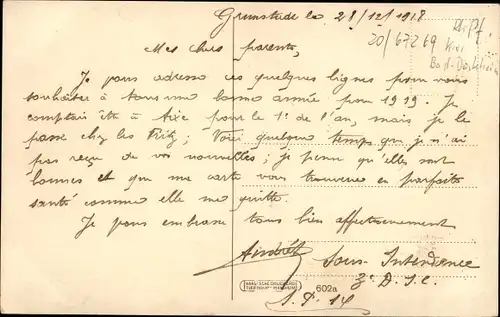 Grunstadt le 28/12/1918
Rh. Pf.
20/67269 Kirr
Bad-Dürkheim
Mes chers parents,
Je vous adresse ces quelques lignes pour vous
souhaiter à tous une bonne année pour 1919. Je
comptais être à Aixe pour le 1er de l'an, mais je le
passe chez les Fritz; Voici quelque temps que je n'ai
pas reçu de vos nouvelles; je pense qu'elles sont
bonnes et que ma carte vous trouvera en parfaite
santé comme elle me quitte.
Je vous embrasse tous bien affectueusement
André
Sous Intendance
3e D.I.C.
S.P. 14
602a